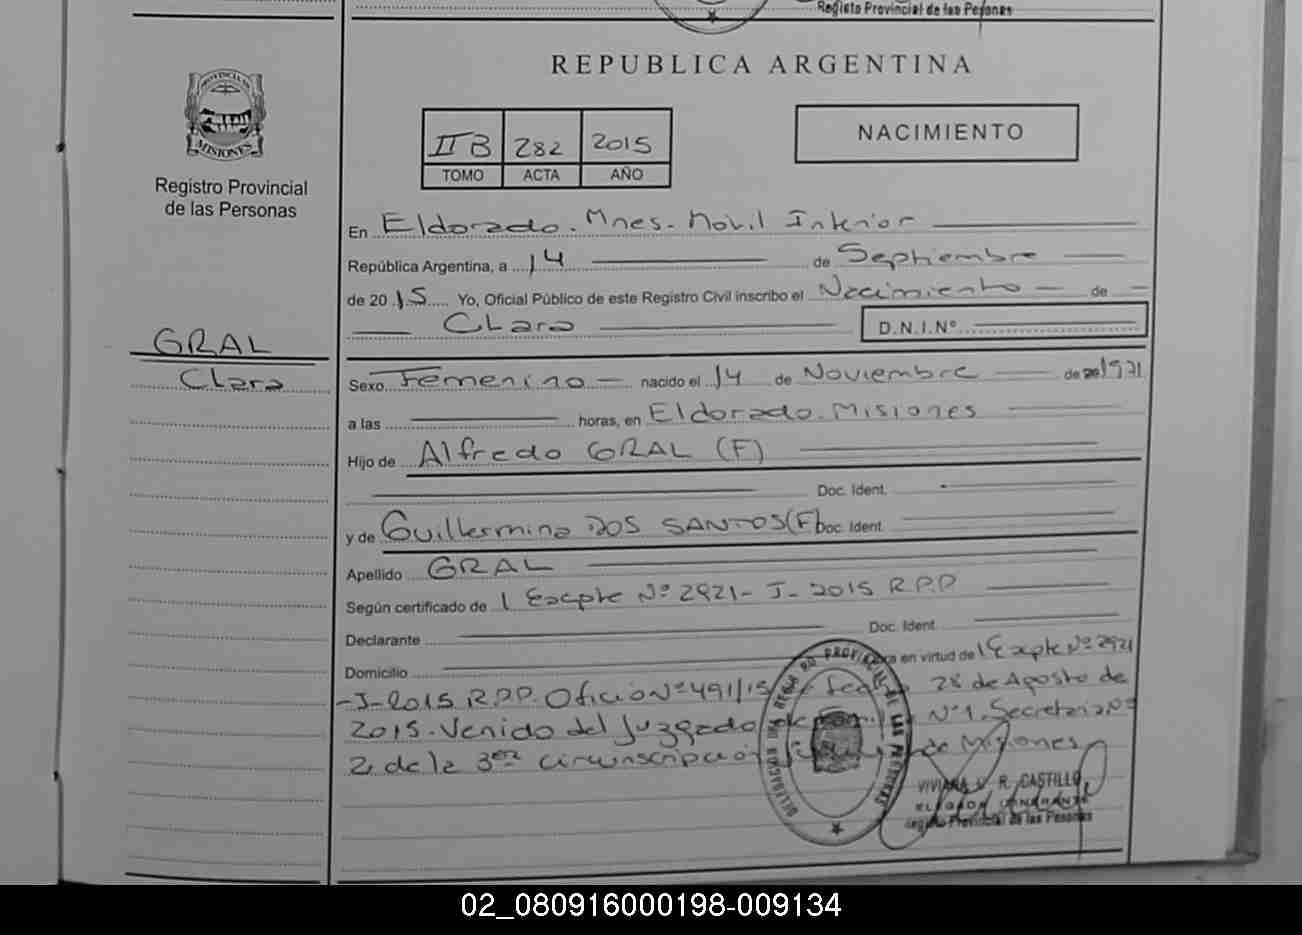 Registro Provincial de las Personas
REPUBLICA ARGENTINA
PROVINCIA DE
MISIONES
Registro Provincial
de las Personas
II B 282 2015
TOMO ACTA AÑO
NACIMIENTO
En Eldorado. Mnes. Móvil Interior
República Argentina, a 14 de Septiembre
de 2015 Yo, Oficial Público de este Registro Civil inscribo el Nacimiento de
Clara D.N.I.Nº
GRAL
Clara
Sexo Femenino nacido el 14 de Noviembre de 1971
a las horas, en Eldorado. Misiones
Hijo de Alfredo GRAL (F)
Doc. Ident.
y de Guillermina DOS SANTOS (F) Doc. Ident.
Apellido GRAL
Según certificado de 1 Expte Nº 2921-J-2015 R.P.P
Declarante Doc. Ident.
Domicilio en virtud de 1 Expte Nº 2921
-J-2015 R.P.P. Oficio Nº 491/15 28 de Agosto de
2015. Venido del Juzgado de Nº 1. Secretaria Nº
2 de la 3era circunscripción de Misiones
DELEGACION DEL REGISTRO PROVINCIAL DE LAS PERSONAS
VIVIANA R. CASTILLO
Registro Provincial de las Personas
02_080916000198-009134